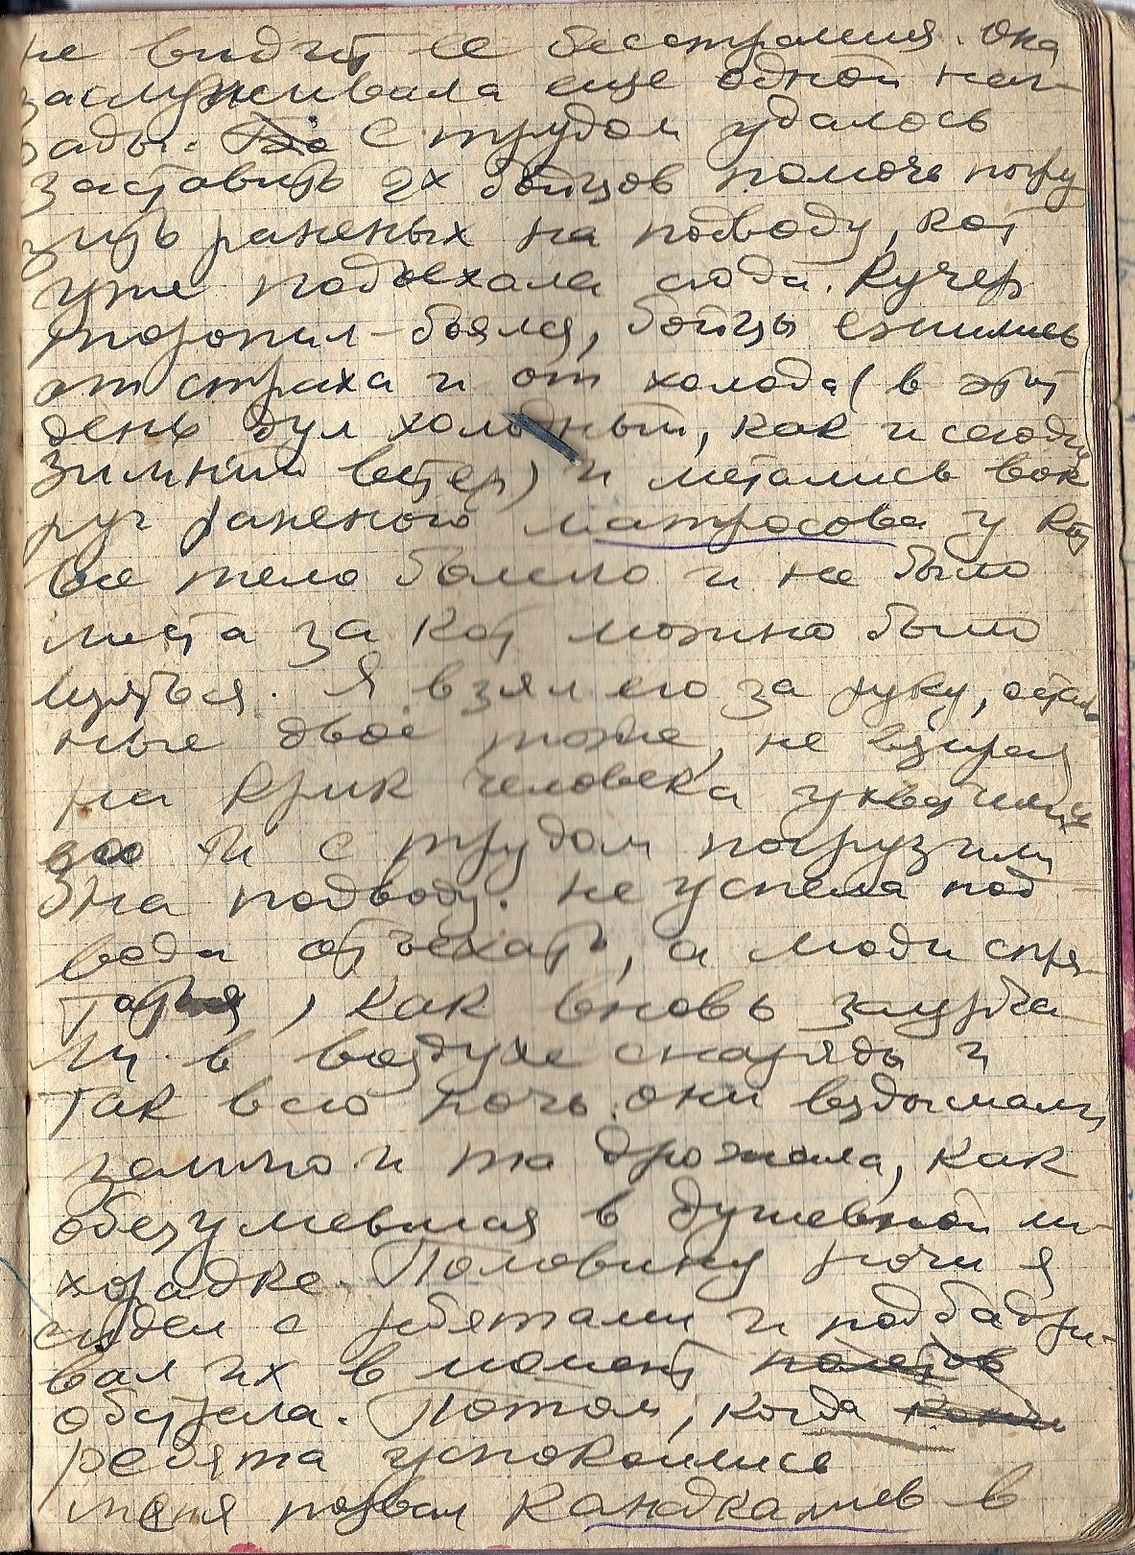 не видит ее бесстрашия. Она
заслуживала еще одной наг-
рады. С трудом удалось
заставить 2х бойцов помочь погру
зить раненых на подводу, кот
уже подъехала сюда. Кучер
торопил - боялся, бойцы ежились
от страха и от холода (в этот
день дул холодный, как и сегодня
зимний ветер) и метались вок
руг раненого Матросова у кот
все тело болело и не было
места за кот можно было
взяться. Я взял его за руку, осталь
ные двое тоже, не взирая
на крик человека ухватились
и с трудом погрузили
на подводу. Не успела под
вода отъехать, а люди спря-
таться, как вновь
ли в воздухе снаряды и
так всю ночь они вздымали
землю и та дрожала, как
обезумевшая в душевной ли-
хорадке. Половину ночи я
сидел с ребятами и подбадри-
вал их в момент полетов
обстрела. Потом, когда
ребята успокоились
меня позвал в